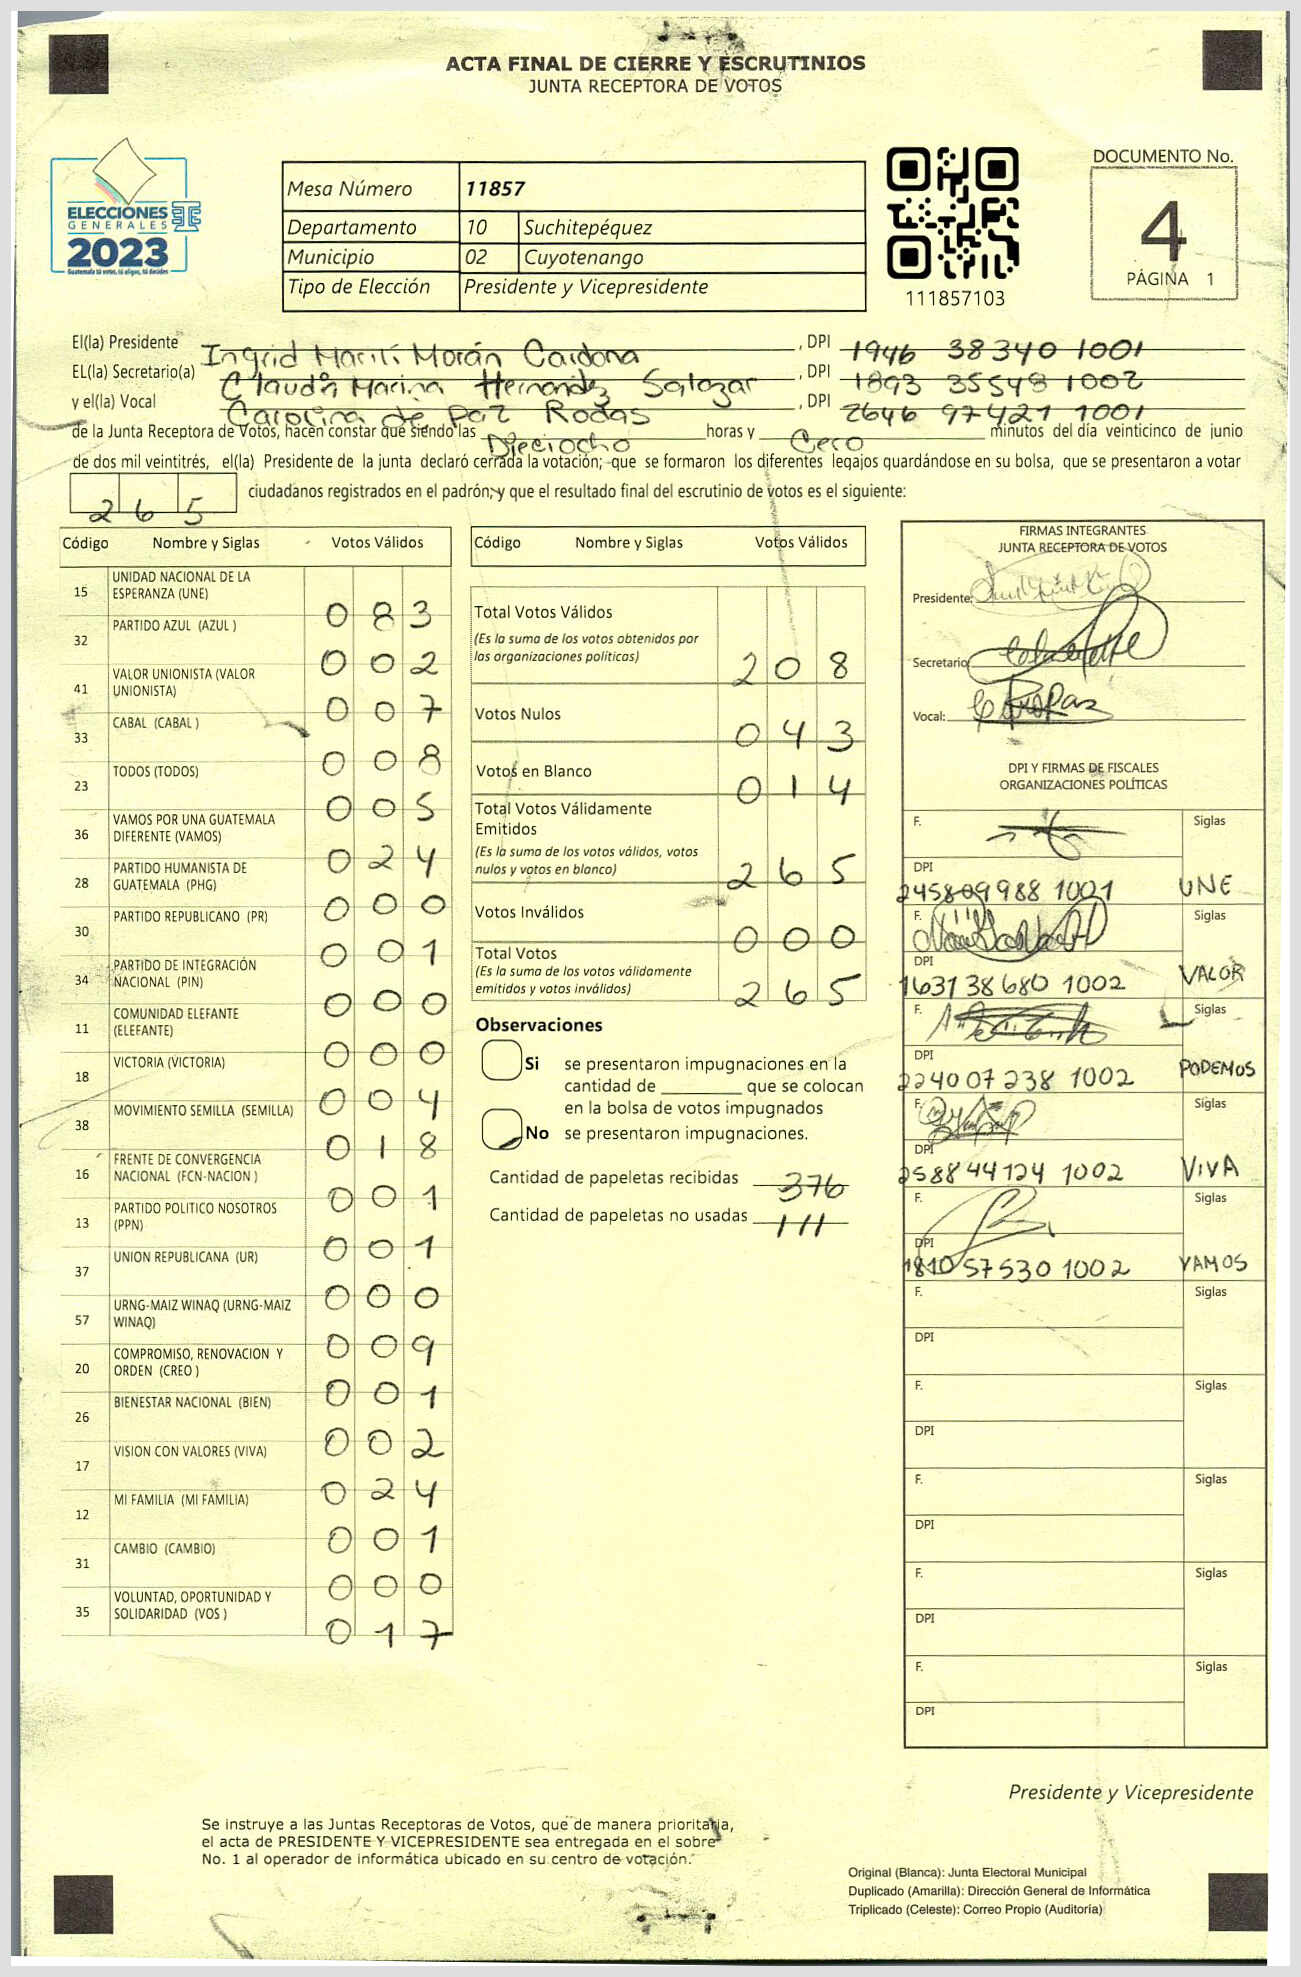 ACTA FINAL DE CIERRE Y ESCRUTINIOS
JUNTA RECEPTORA DE VOTOS
ELECCIONES
GENERALES
2023
Guatemala tú votas, tú eliges, tú decides
Mesa Número 11857
Departamento 10 Suchitepéquez
Municipio 02 Cuyotenango
Tipo de Elección Presidente y Vicepresidente
111857103
DOCUMENTO No.
4
PÁGINA 1
El(la) Presidente Ingrid Marilí Morán Cardona, DPI 1946 38340 1001
EL(la) Secretario(a) Claudia Marina Hernandez Salazar, DPI 1893 35548 1002
y el(la) Vocal Carolina de Paz Rodas, DPI 2646 97421 1001
de la Junta Receptora de Votos, hacen constar que siendo las Dieciocho horas y Cero minutos del día veinticinco de junio
de dos mil veintitrés, el(la) Presidente de la junta declaró cerrada la votación; que se formaron los diferentes legajos guardándose en su bolsa, que se presentaron a votar
265 ciudadanos registrados en el padrón; y que el resultado final del escrutinio de votos es el siguiente:
Código Nombre y Siglas Votos Válidos
15 UNIDAD NACIONAL DE LA ESPERANZA (UNE) 083
32 PARTIDO AZUL (AZUL ) 002
41 VALOR UNIONISTA (VALOR UNIONISTA) 007
33 CABAL (CABAL ) 008
23 TODOS (TODOS) 005
36 VAMOS POR UNA GUATEMALA DIFERENTE (VAMOS) 024
28 PARTIDO HUMANISTA DE GUATEMALA (PHG) 000
30 PARTIDO REPUBLICANO (PR) 001
34 PARTIDO DE INTEGRACIÓN NACIONAL (PIN) 000
11 COMUNIDAD ELEFANTE (ELEFANTE) 000
18 VICTORIA (VICTORIA) 004
38 MOVIMIENTO SEMILLA (SEMILLA) 018
16 FRENTE DE CONVERGENCIA NACIONAL (FCN-NACION ) 001
13 PARTIDO POLITICO NOSOTROS (PPN) 001
37 UNION REPUBLICANA (UR) 000
57 URNG-MAIZ WINAQ (URNG-MAIZ WINAQ) 009
20 COMPROMISO, RENOVACION Y ORDEN (CREO ) 001
26 BIENESTAR NACIONAL (BIEN) 002
17 VISION CON VALORES (VIVA) 024
12 MI FAMILIA (MI FAMILIA) 001
31 CAMBIO (CAMBIO) 000
35 VOLUNTAD, OPORTUNIDAD Y SOLIDARIDAD (VOS ) 017
Código Nombre y Siglas Votos Válidos
Total Votos Válidos
(Es la suma de los votos obtenidos por
las organizaciones políticas) 208
Votos Nulos 043
Votos en Blanco 014
Total Votos Válidamente
Emitidos
(Es la suma de los votos válidos, votos
nulos y votos en blanco) 265
Votos Inválidos 000
Total Votos
(Es la suma de los votos válidamente
emitidos y votos inválidos) 265
Observaciones
Si se presentaron impugnaciones en la
cantidad de ________ que se colocan
en la bolsa de votos impugnados
No se presentaron impugnaciones.
Cantidad de papeletas recibidas 376
Cantidad de papeletas no usadas 111
FIRMAS INTEGRANTES
JUNTA RECEPTORA DE VOTOS
Presidente:
Secretario:
Vocal:
DPI Y FIRMAS DE FISCALES
ORGANIZACIONES POLÍTICAS
F. Siglas
DPI
245809988 1001 UNE
F. Siglas
DPI
1637 38680 1002 VALOR
F. Siglas
DPI
224007238 1002 PODEMOS
F. Siglas
DPI
2588 44124 1002 VIVA
F. Siglas
DPI
1810 57530 1002 VAMOS
F. Siglas
DPI
F. Siglas
DPI
F. Siglas
DPI
F. Siglas
DPI
F. Siglas
DPI
Presidente y Vicepresidente
Se instruye a las Juntas Receptoras de Votos, que de manera prioritaria,
el acta de PRESIDENTE Y VICEPRESIDENTE sea entregada en el sobre
No. 1 al operador de informática ubicado en su centro de votación.
Original (Blanca): Junta Electoral Municipal
Duplicado (Amarilla): Dirección General de Informática
Triplicado (Celeste): Correo Propio (Auditoría)